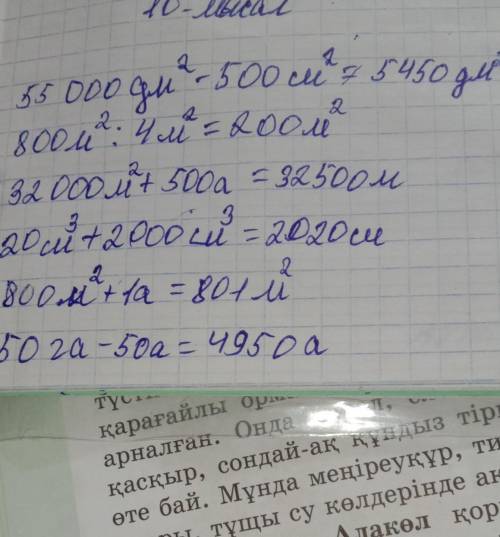 10-мысал
55 000 дм² - 500 см² = 5450 дм
800м² : 4м² = 200м²
32 000м² + 500а = 32500м
20см³ + 2000см³ = 2020см
800м² + 1а = 801м²
50 га - 50а = 4950а
қарағайлы
арналған. Онда
қасқыр, сондай-ақ құндыз тір
өте бай. Мұнда меңіреуқұр, ти
тұщы су көлдерінде ақ
Алакөл қор